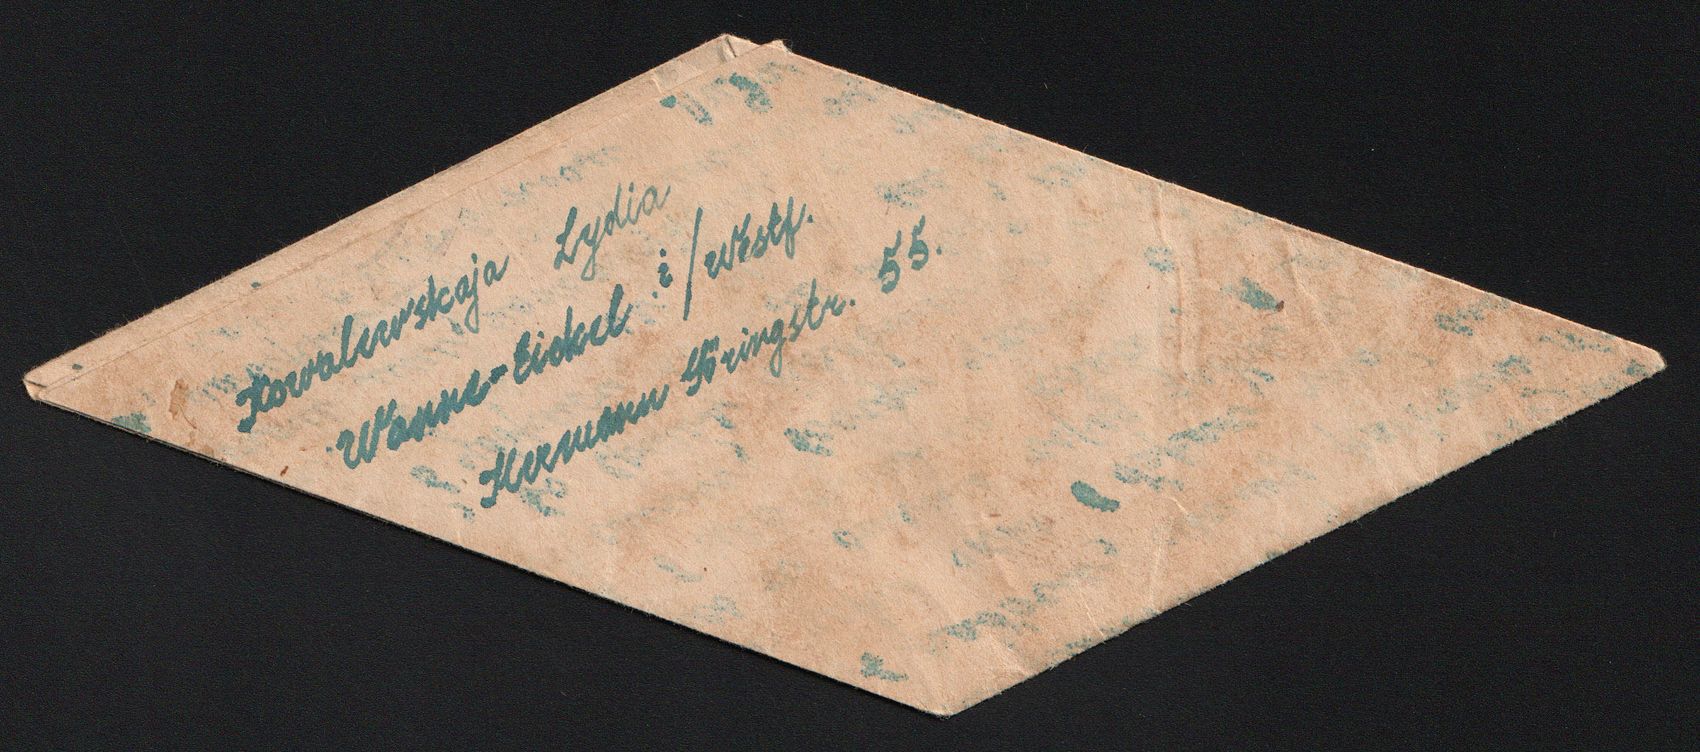 Kowalewskaja Lydia
Wanne-Eickel i/Westf.
Hermann Göringstr. 55.